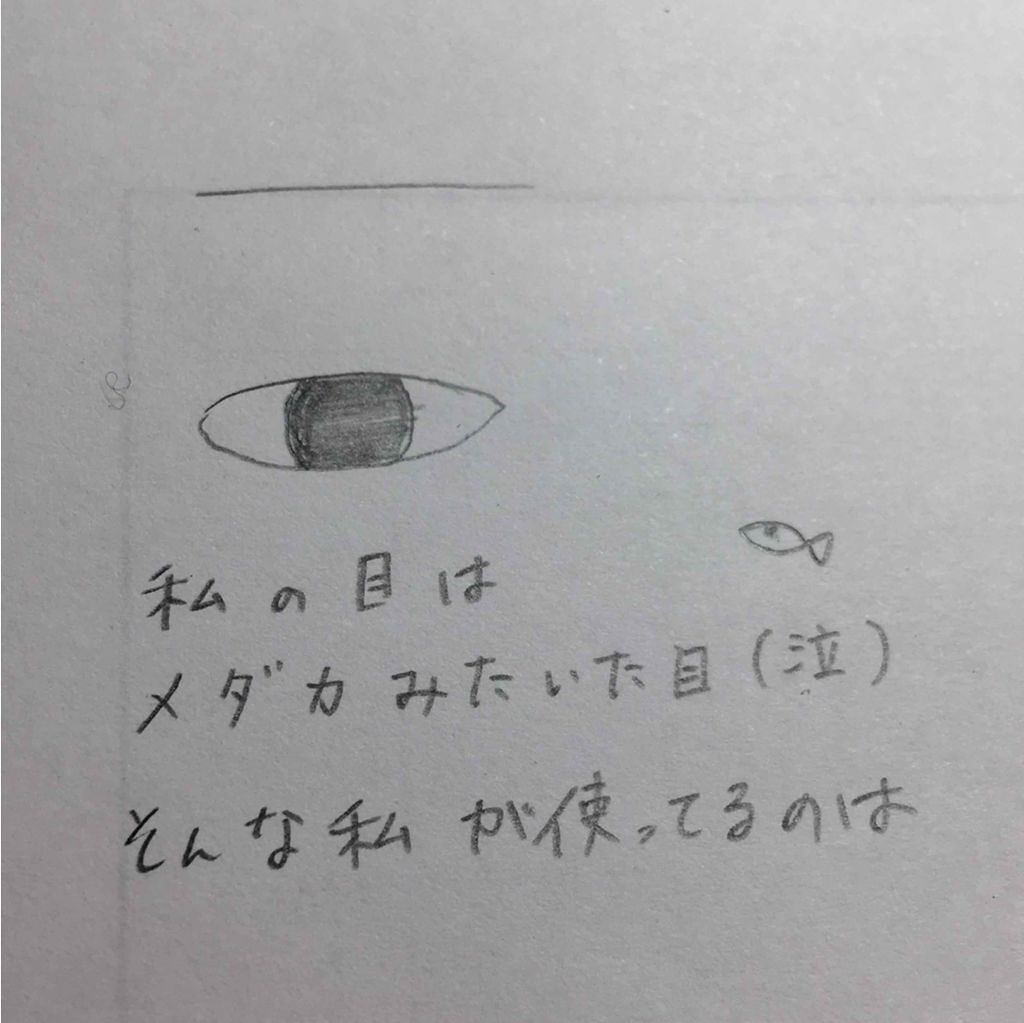 私の目は
メダカみたいた目(泣)
そんな私が使ってるのは